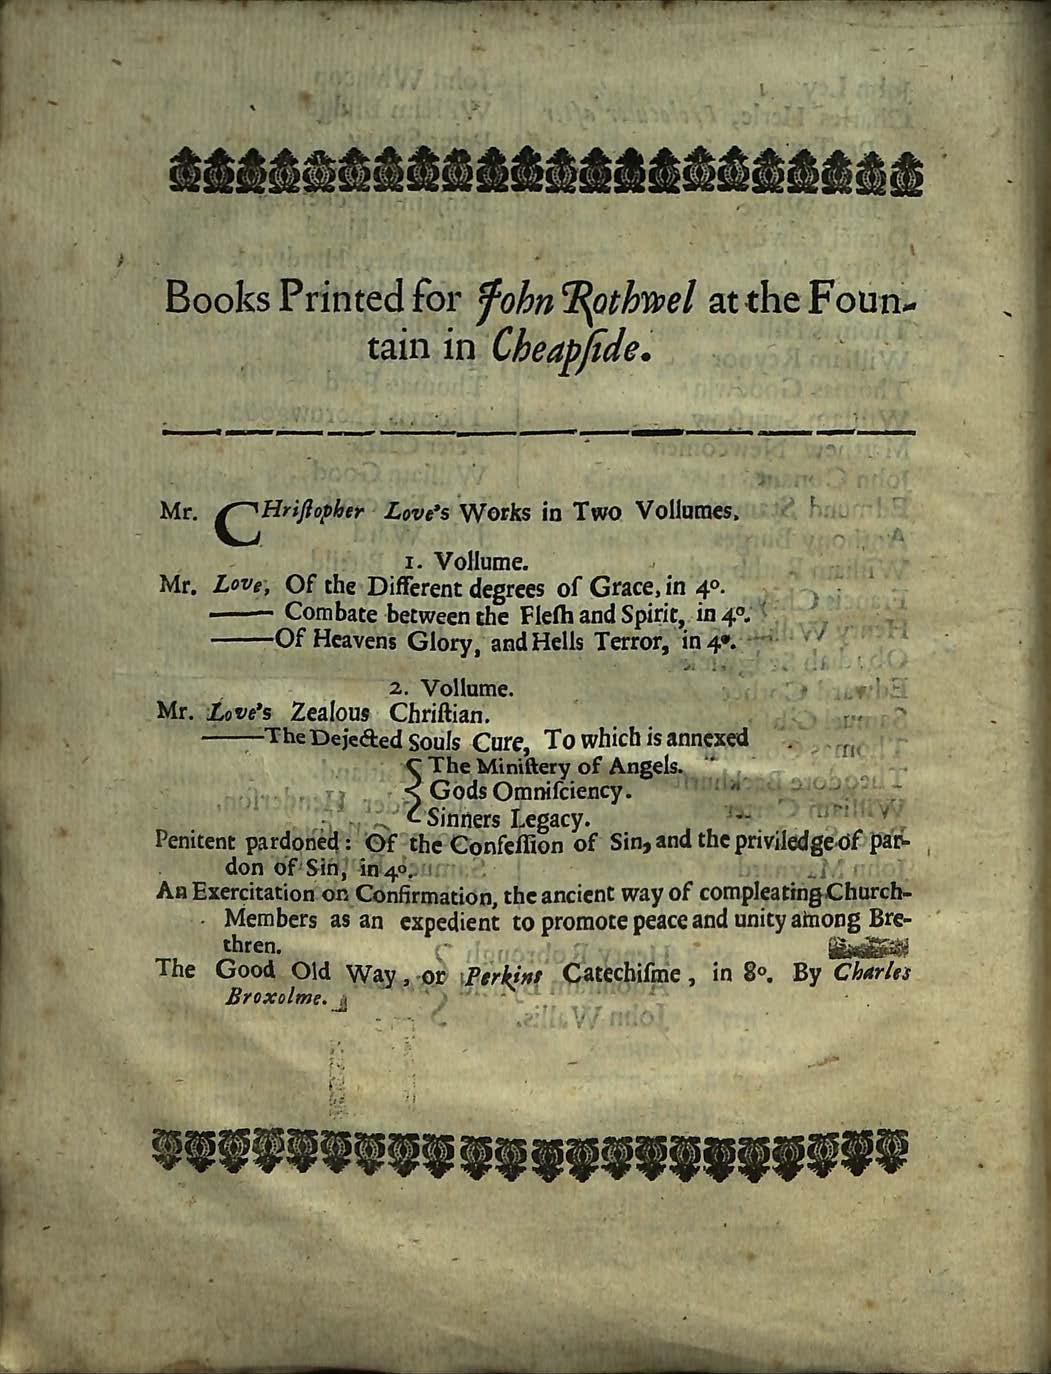 Books Printed for John Rothwel at the Foun-
tain in Cheapſide.
Mr. CHriſtopher Love's Works in Two Vollumes.
1. Vollume.
Mr. Love, Of the Different degrees of Grace, in 4º.
—— Combate between the Fleſh and Spirit, in 4º.
——Of Heavens Glory, and Hells Terror, in 4º.
2. Vollume.
Mr. Love's Zealous Chriſtian.
——The Dejected Souls Cure, To which is annexed
The Miniſtery of Angels.
Gods Omniſciency.
Sinners Legacy.
Penitent pardoned: Of the Confeſſion of Sin, and the priviledge of par-
don of Sin, in 4º.
An Exercitation on Confirmation, the ancient way of compleating Church-
Members as an expedient to promote peace and unity among Bre-
thren.
The Good Old Way, or Perkins Catechiſme, in 8º. By Charles
Broxolme.